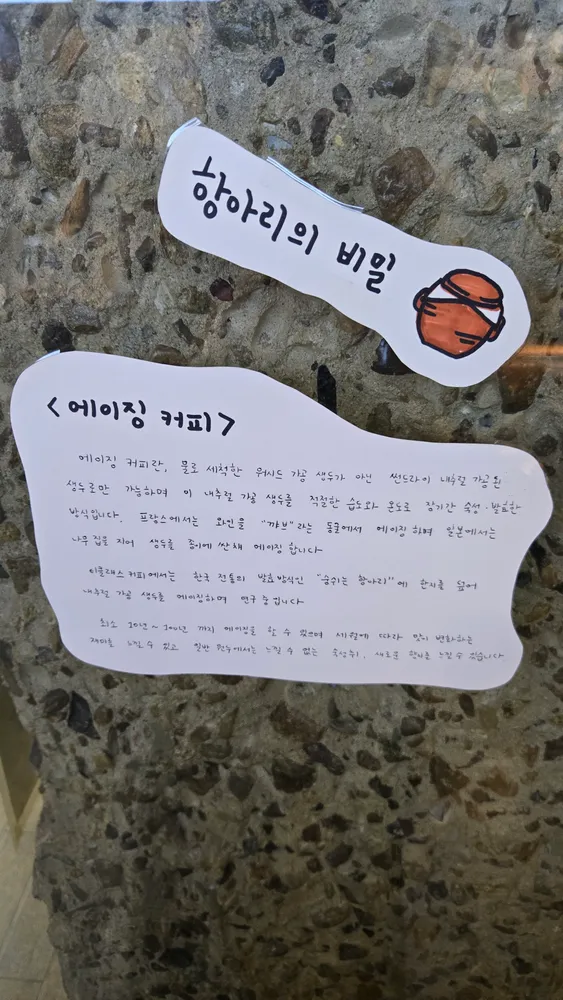 항아리의 비밀
<에이징 커피>
에이징 커피란, 물로 세척한 워시드 가공 생두가 아닌 썬드라이 내추럴 가공된
생두로만 가능하며 이 내추럴 가공 생두를 적절한 습도와 온도로 장기간 숙성·발효한
방식입니다. 프랑스에서는 와인을 "꺄브"라는 동굴에서 에이징 하며 일본에서는
나무집을 지어 생두를 종이에 싼채 에이징 합니다
티클래스커피에서는 한국 전통의 발효방식인 "숨쉬는 항아리"에 한지를 넣어
내추럴 가공 생두를 에이징하며 연구 중입니다
최소 10년~ 까지 에이징을 할 수 있으며 세월에 따라 맛이 변화하는
재미를 느낄 수 있고 일반 원두에서는 느낄 수 없는 새로운 향미를 느낄 수 있습니다.